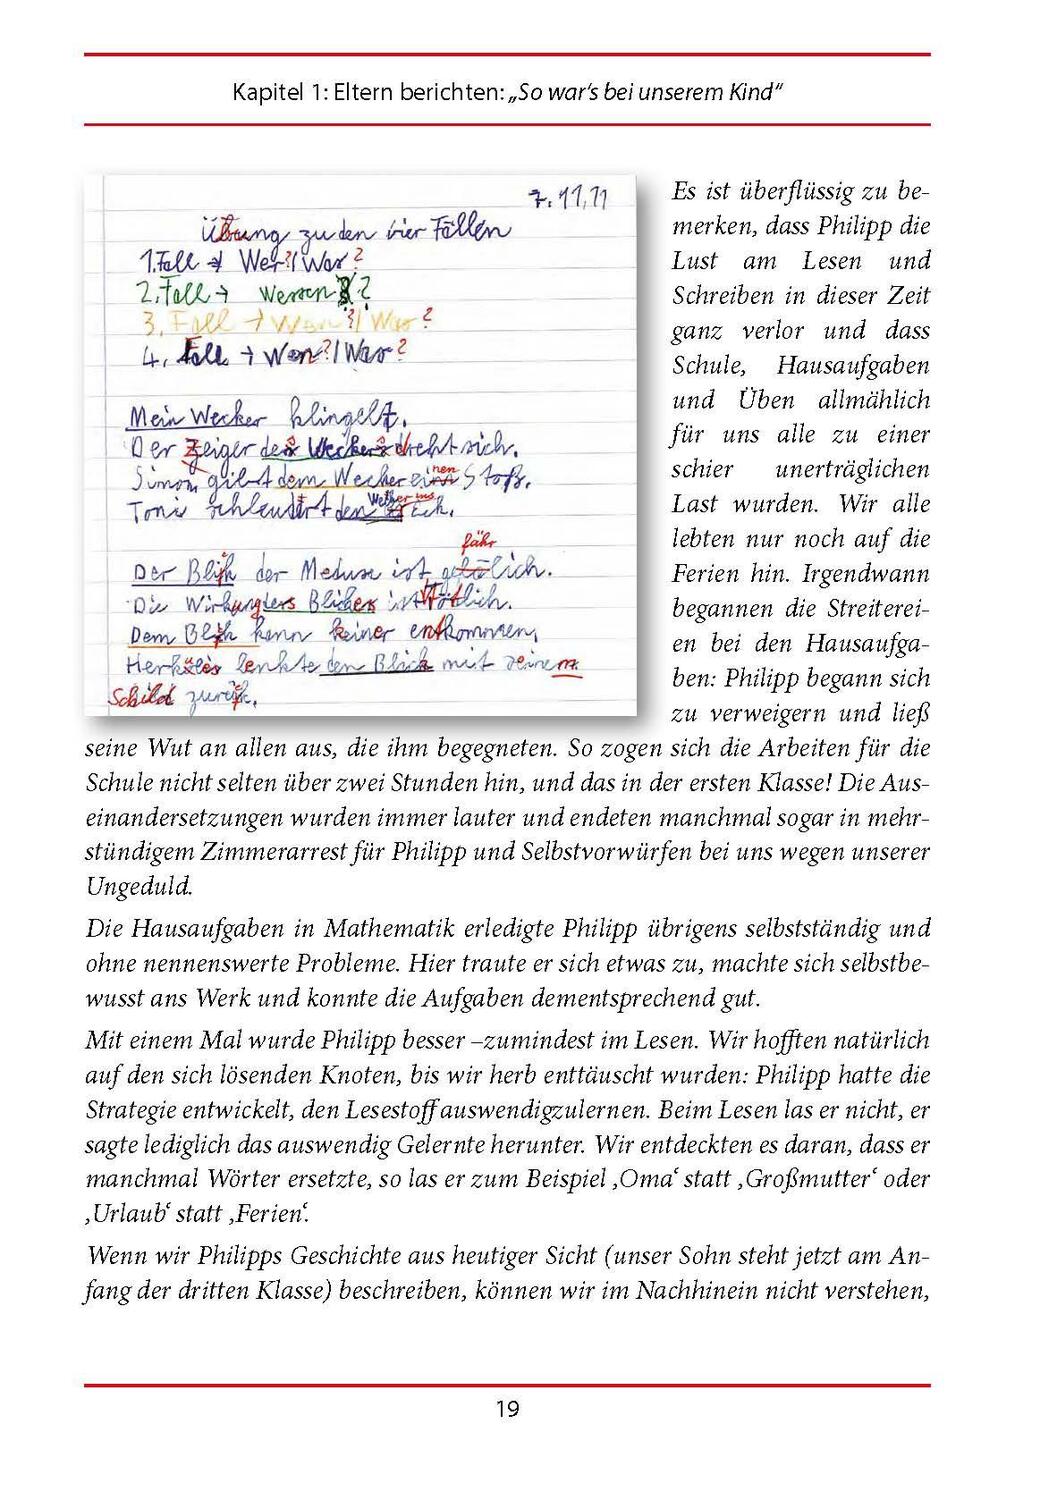 Kapitel 1: Eltern berichten: „So war's bei unserem Kind“
7.11.11
Übung zu den vier Fällen
1. Fall → Wer?/Was?
2. Fall → Wessen?
3. Fall → Wem?/Was?
4. Fall → Wen?/Was?
Mein Wecker klingelt.
Der Zeiger des Weckers dreht sich.
Simon gibt dem Wecker einen Stoß.
Toni schleudert den
fähr
Der Blick der Meduse ist lich.
Die Wirkung Blickes ist tödlich.
Dem Blick kann keiner entkommen.
lenkte den Blick mit seinem
Schild zurück.
Es ist überflüssig zu be-
merken, dass Philipp die
Lust am Lesen und
Schreiben in dieser Zeit
ganz verlor und dass
Schule, Hausaufgaben
und Üben allmählich
für uns alle zu einer
schier unerträglichen
Last wurden. Wir alle
lebten nur noch auf die
Ferien hin. Irgendwann
begannen die Streiterei-
en bei den Hausaufga-
ben: Philipp begann sich
zu verweigern und ließ
seine Wut an allen aus, die ihm begegneten. So zogen sich die Arbeiten für die
Schule nicht selten über zwei Stunden hin, und das in der ersten Klasse! Die Aus-
einandersetzungen wurden immer lauter und endeten manchmal sogar in mehr-
stündigem Zimmerarrest für Philipp und Selbstvorwürfen bei uns wegen unserer
Ungeduld.
Die Hausaufgaben in Mathematik erledigte Philipp übrigens selbstständig und
ohne nennenswerte Probleme. Hier traute er sich etwas zu, machte sich selbstbe-
wusst ans Werk und konnte die Aufgaben dementsprechend gut.
Mit einem Mal wurde Philipp besser –zumindest im Lesen. Wir hofften natürlich
auf den sich lösenden Knoten, bis wir herb enttäuscht wurden: Philipp hatte die
Strategie entwickelt, den Lesestoff auswendigzulernen. Beim Lesen las er nicht, er
sagte lediglich das auswendig Gelernte herunter. Wir entdeckten es daran, dass er
manchmal Wörter ersetzte, so las er zum Beispiel ‚Oma‘ statt ‚Großmutter‘ oder
‚Urlaub‘ statt ‚Ferien‘.
Wenn wir Philipps Geschichte aus heutiger Sicht (unser Sohn steht jetzt am An-
fang der dritten Klasse) beschreiben, können wir im Nachhinein nicht verstehen,
19